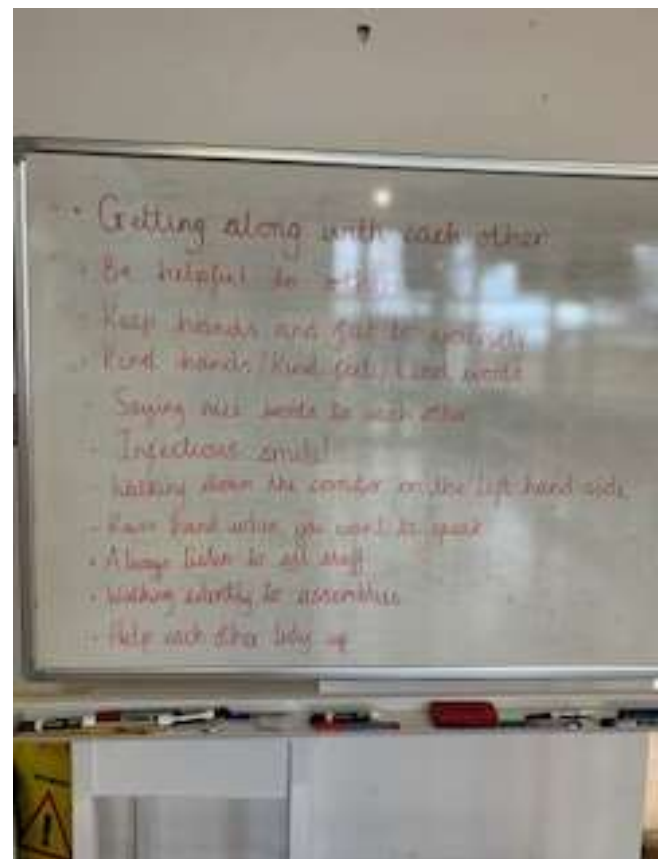 • Getting along with each other
• Be helpful to others
• Keep hands and feet to yourself
• Kind hands/Kind feet/Kind words
- Saying nice words to each other
- Infectious smile!
- Walking down the corridor on the left hand side
- Raise hand when you want to speak
• Always listen to all staff
• Walking silently to assemblies
- Help each other tidy up